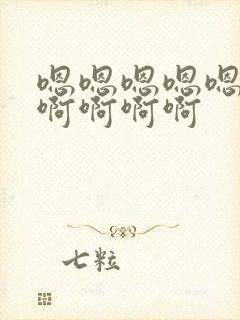 嗯嗯嗯嗯嗯
啊啊啊啊
七粒